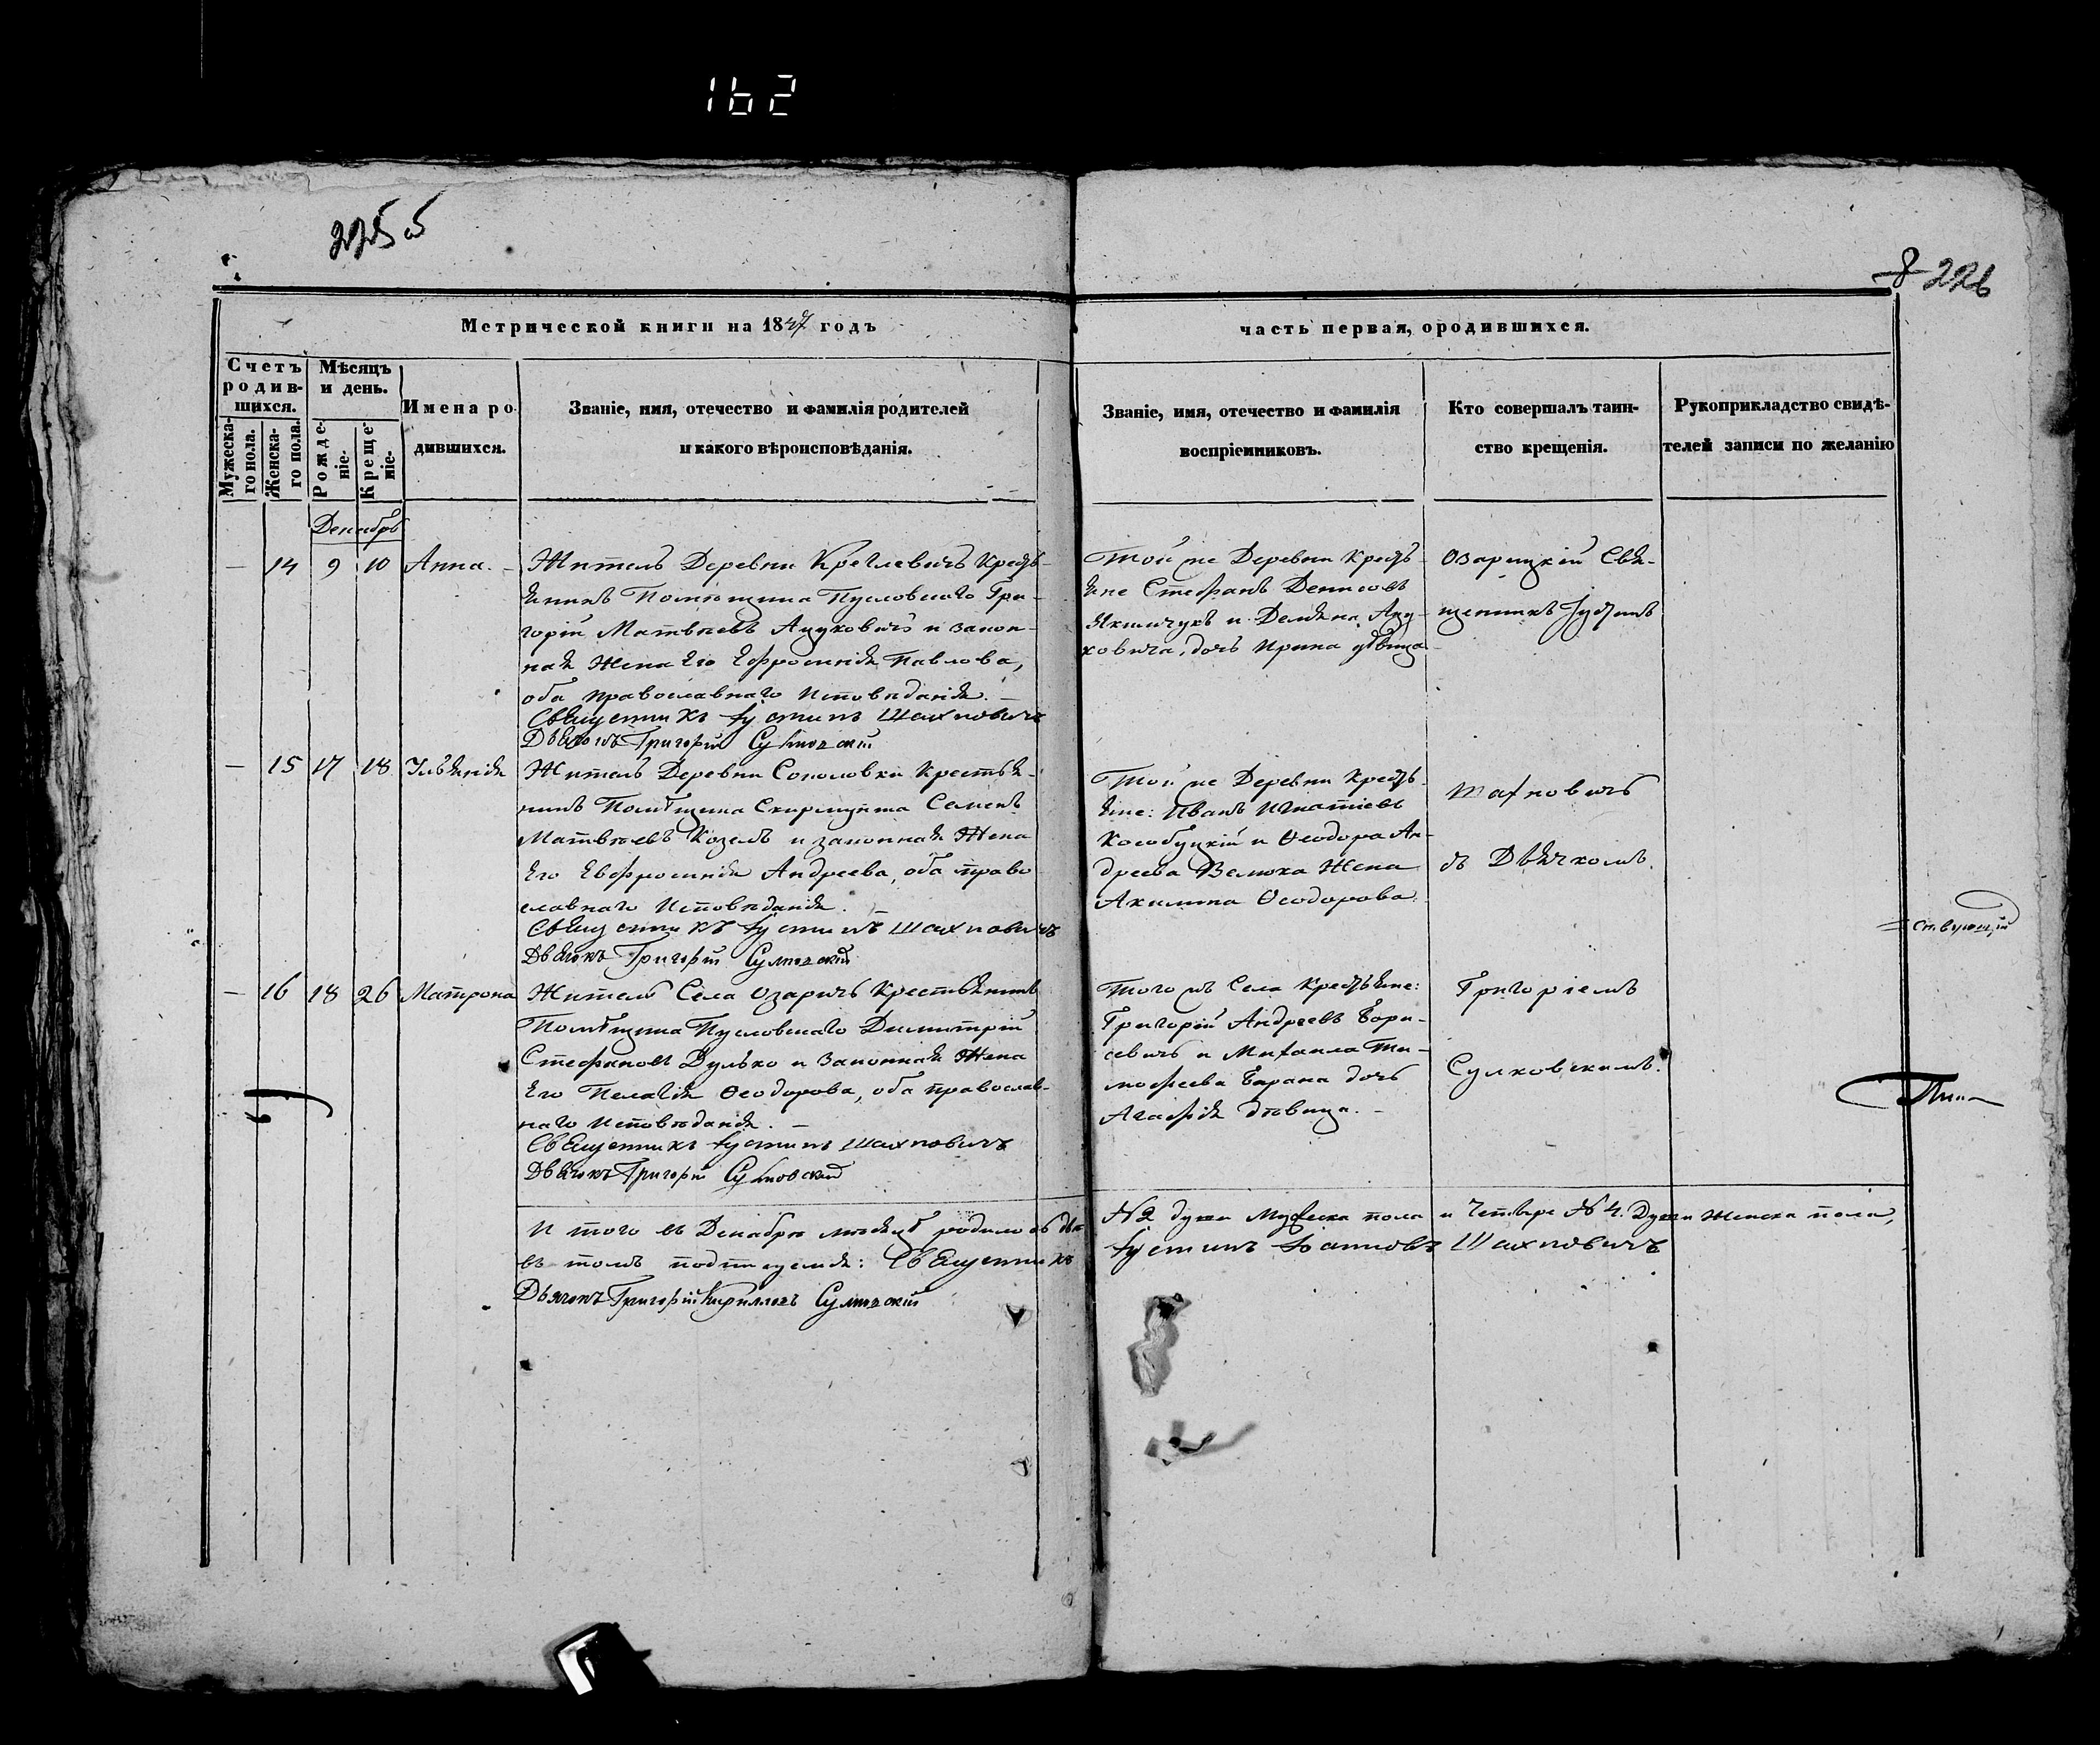 162
225 об
8 226
Метрической книги на 1847 годъ
часть первая, ородившихся.
Счетъ родив-
шихся.
Мужеска-
го пола.
Женска-
го пола.
Мѣсяцъ
и день.
Рожде-
ніе.
Креще-
ніе.
Имена ро-
дившихся.
Званіе, имя, отечество и фамилія родителей
и какого вѣроисповѣданія.
Званіе, имя, отечество и фамилія
воспріемниковъ.
Кто совершалъ таин-
ство крещенія.
Рукоприкладство свидѣ-
телей записи по желанію
Декабрь
— 14 9 10 Анна. —
Житель Деревни Креглевичъ Кресть-
янинъ Помѣщика Пусловскаго Гри-
горій Матвѣевъ Ацуковичъ и закон-
ная Жена Его Ефросинія Павлова,
оба православнаго Исповѣданія. —
Священникъ Іустинъ Шахновичъ
Дьячокъ Григорій Сулковскій
Той же Деревни Кресть-
яне Стефанъ Денисовъ
и Демяна Ацу-
ковича, дочь Ирина дѣвица
Озарицкій Свя-
щенникъ Іустинъ
— 15 17 18 Ульянія
Житель Деревни Соколовки Крестья-
нинъ Помѣщика Скирмунта Семенъ
Матвѣевъ Козелъ и законная Жена
Его Евфросинія Андреева, оба право
славнаго Исповѣданія. —
Священникъ Іустинъ Шахновичъ
Дьячокъ Григорій Сулковскій
Той же Деревни Кресть-
яне: Иванъ Игнатіевъ
Кособуцкій и Ѳеодора Ан-
дреева Велюка Жена
Акилина Ѳеодорова.
Шахновичъ
съ Дьячкомъ.
— 16 18 26 Матрона
Житель Села Озаричъ Крестьянинъ
Помѣщика Пусловскаго Димитрій
Стефановъ Дулько и Законная Жена
Его Пелагія Ѳеодорова, оба православ-
наго Исповѣданія. —
Священникъ Іустинъ Шахновичъ
Дьячокъ Григорій Сулковскій
Того жъ Села Крестьяне:
Григорій Андреевъ Бори-
севичъ и Михаила Ти-
мофеева Барана дочь
Агафія дѣвица. —
Григоріемъ
Сулковскимъ.
И того въ Декабрѣ мѣсяцѣ родилось двѣ № 2 души Мужеска пола и Четыре № 4. Души Женска пола,
въ томъ подписуемся: Священникъ Іустинъ Іоанновъ Шахновичъ
Дьячокъ Григорій Кирилловъ Сулковскій